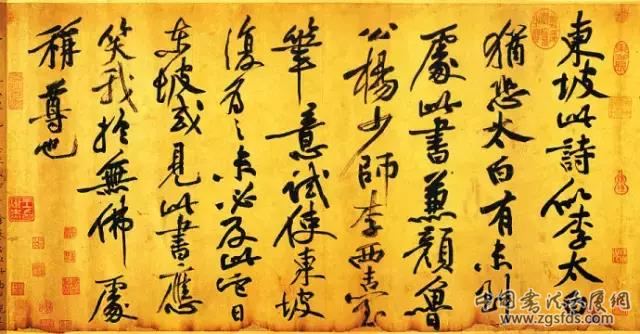 東坡此詩似李太白
猶恐太白有未到
處此書兼顏魯
公楊少師李西臺
筆意試使東坡
復為之未必及此它日
東坡或見此書應
笑我於無佛處
稱尊也
www.zgsfds.com